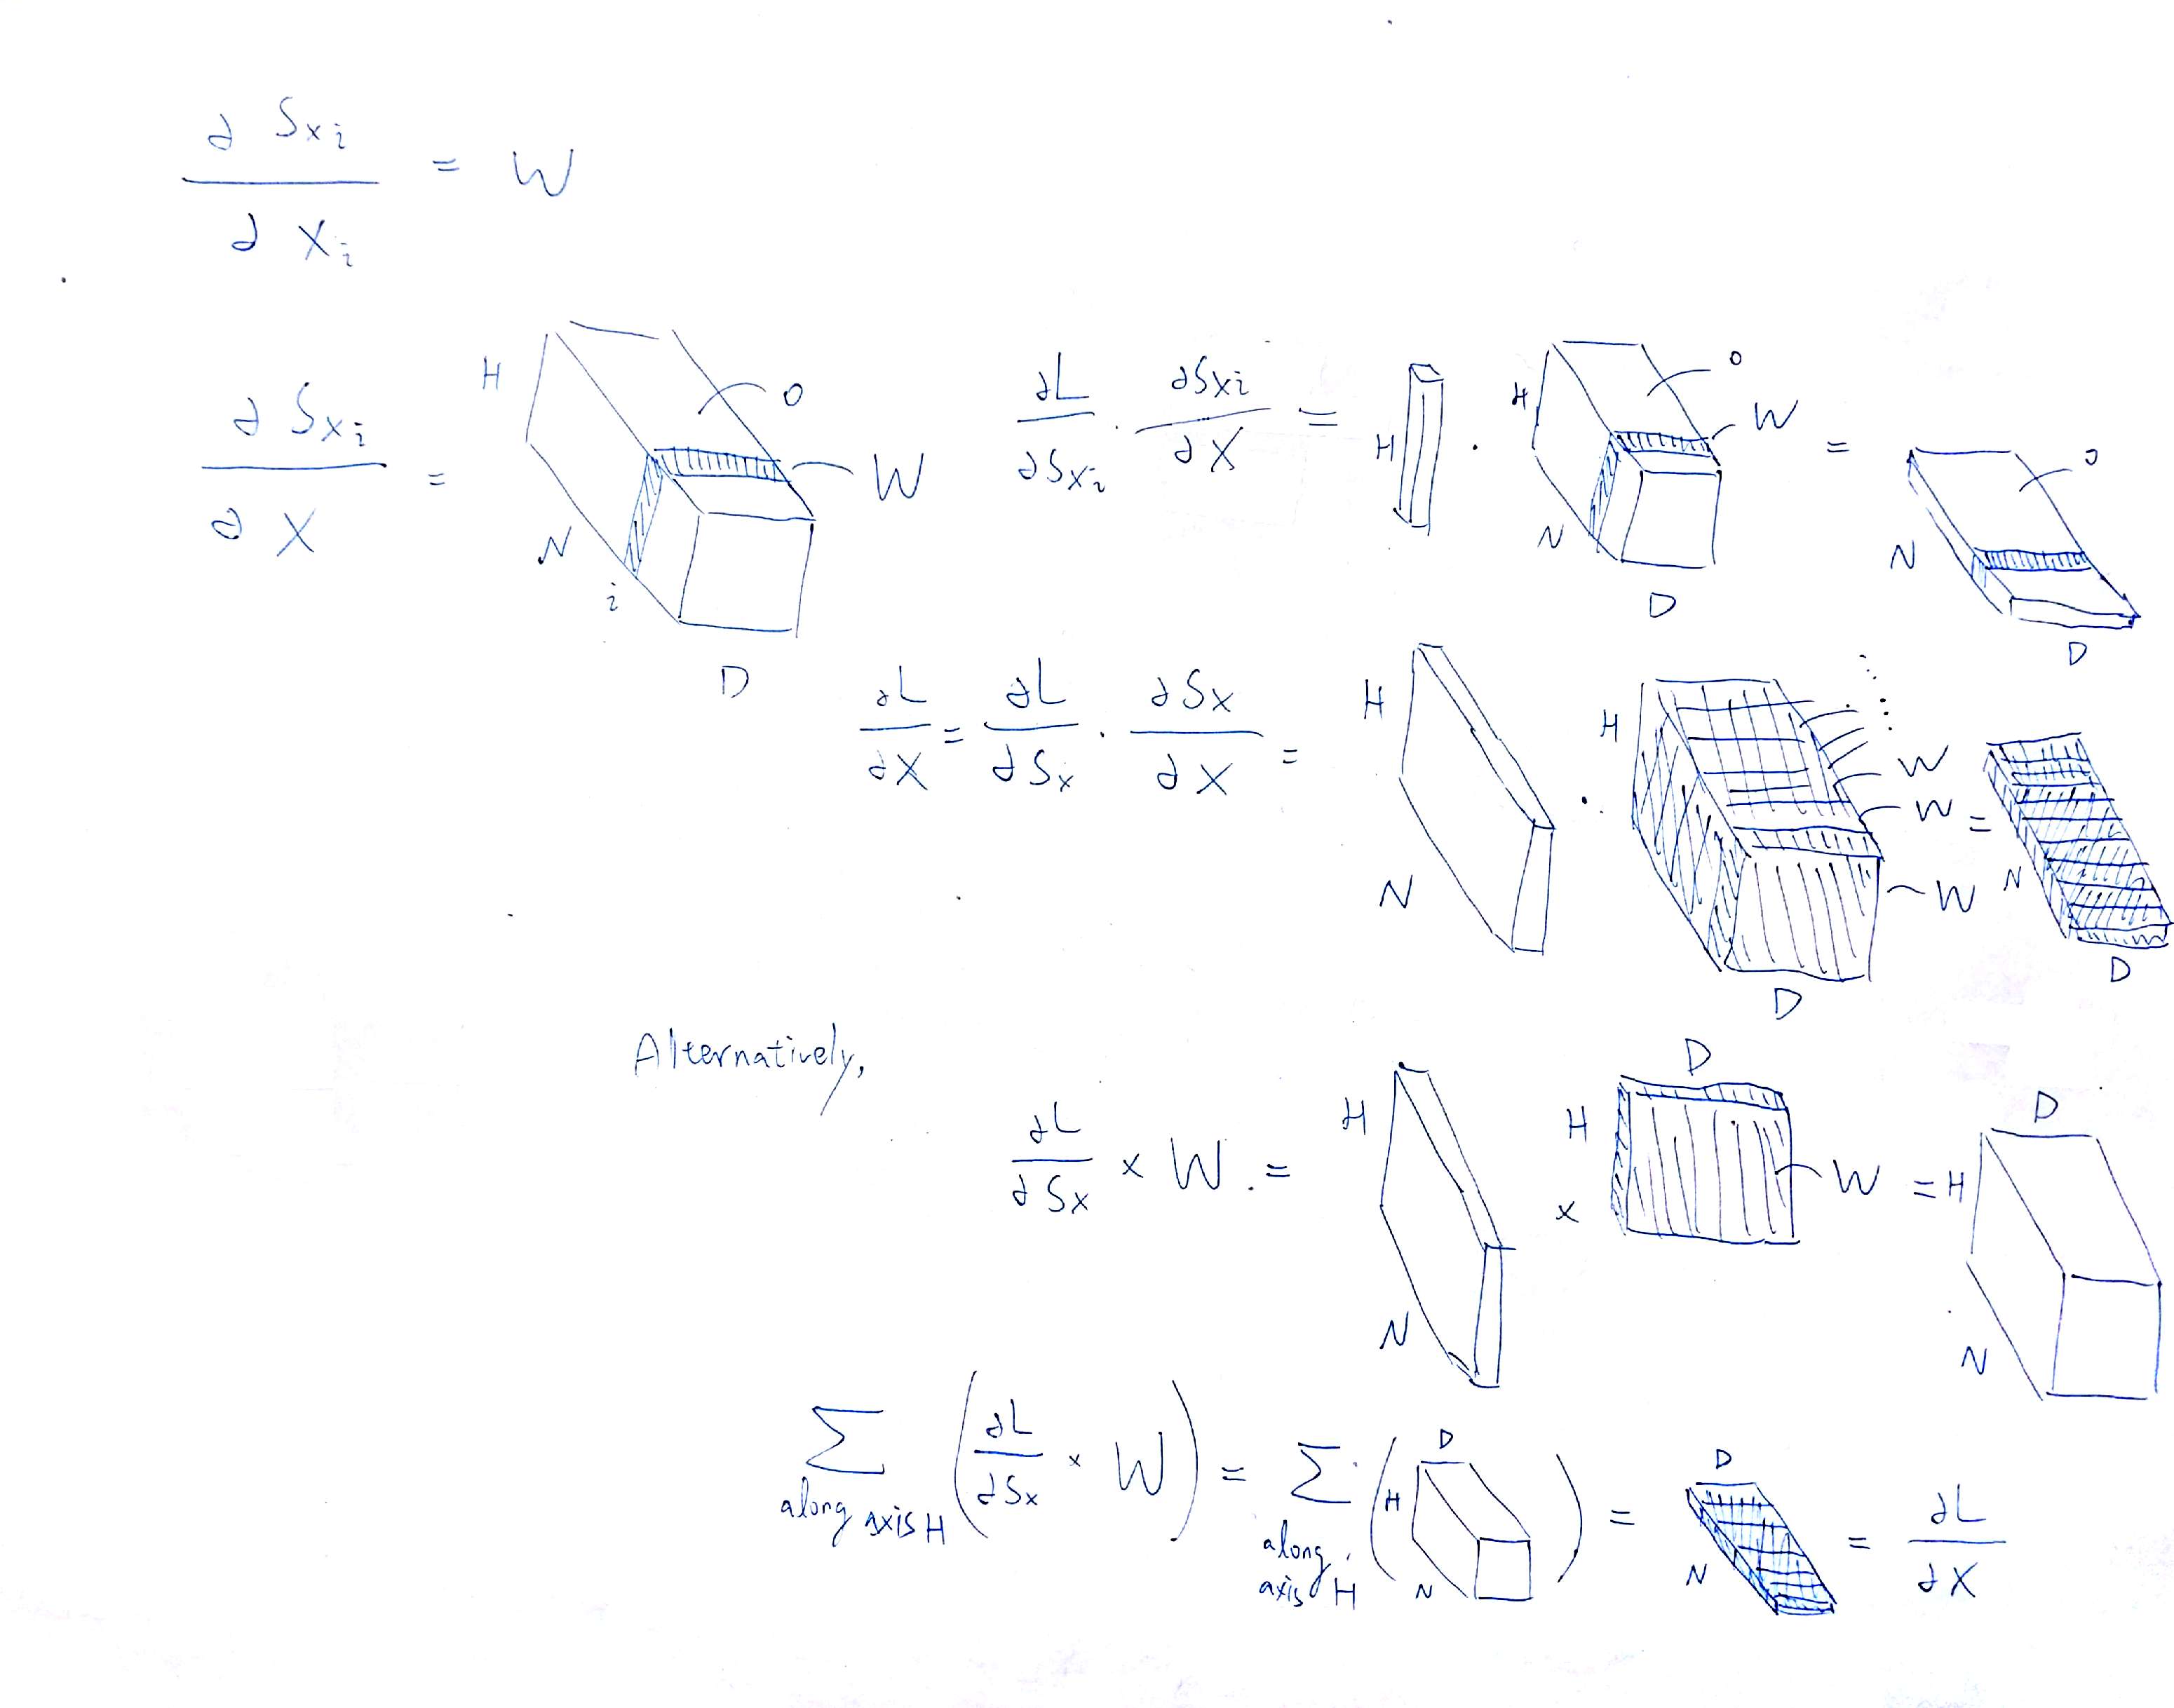 ∂ Sxi / ∂ Xi = W
∂ Sxi / ∂ X = H N i D O W
∂L / ∂Sxi · ∂Sxi / ∂X = H · H N D O W = N D O
∂L / ∂X = ∂L / ∂Sx · ∂Sx / ∂X = H N · H D W W W = N D
Alternatively,
∂L / ∂Sx × W = H N × H D W = H D N
∑ along axis H ( ∂L / ∂Sx × W ) = ∑ along axis H ( D H N ) = D N = ∂L / ∂X